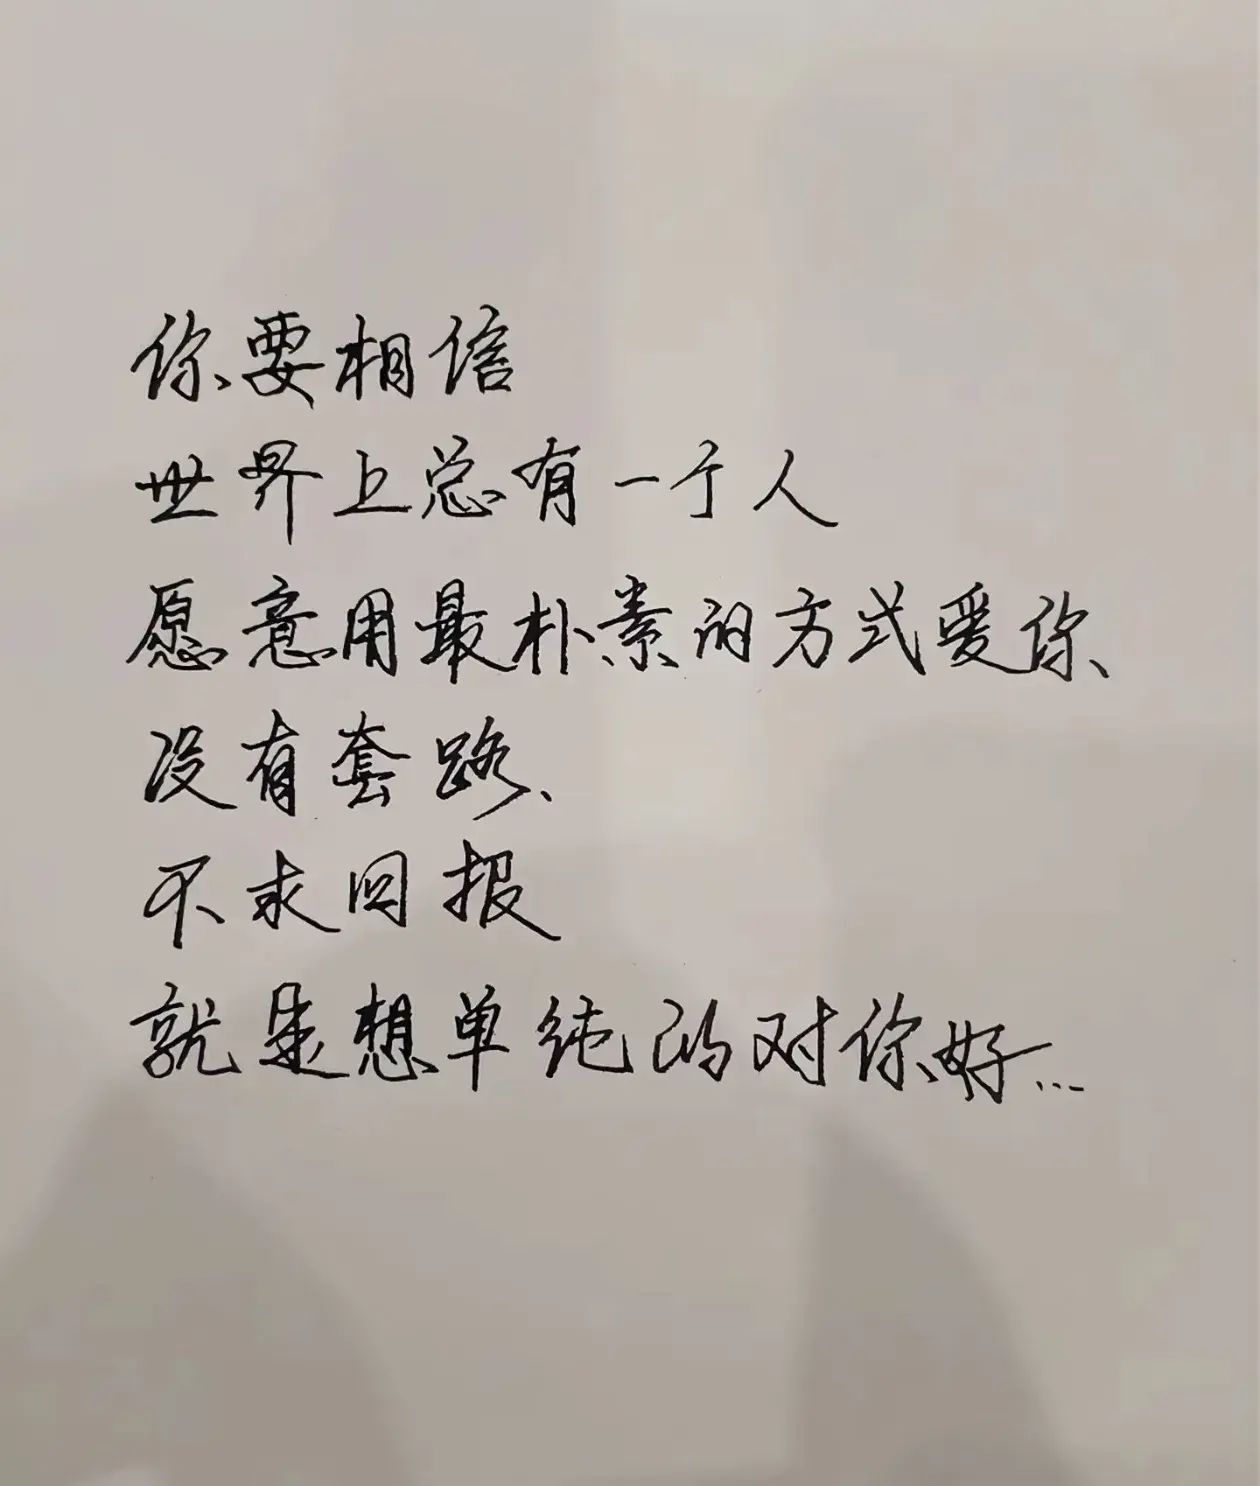 你要相信
世界上总有一个人
愿意用最朴素的方式爱你
没有套路
不求回报
就是想单纯的对你好...